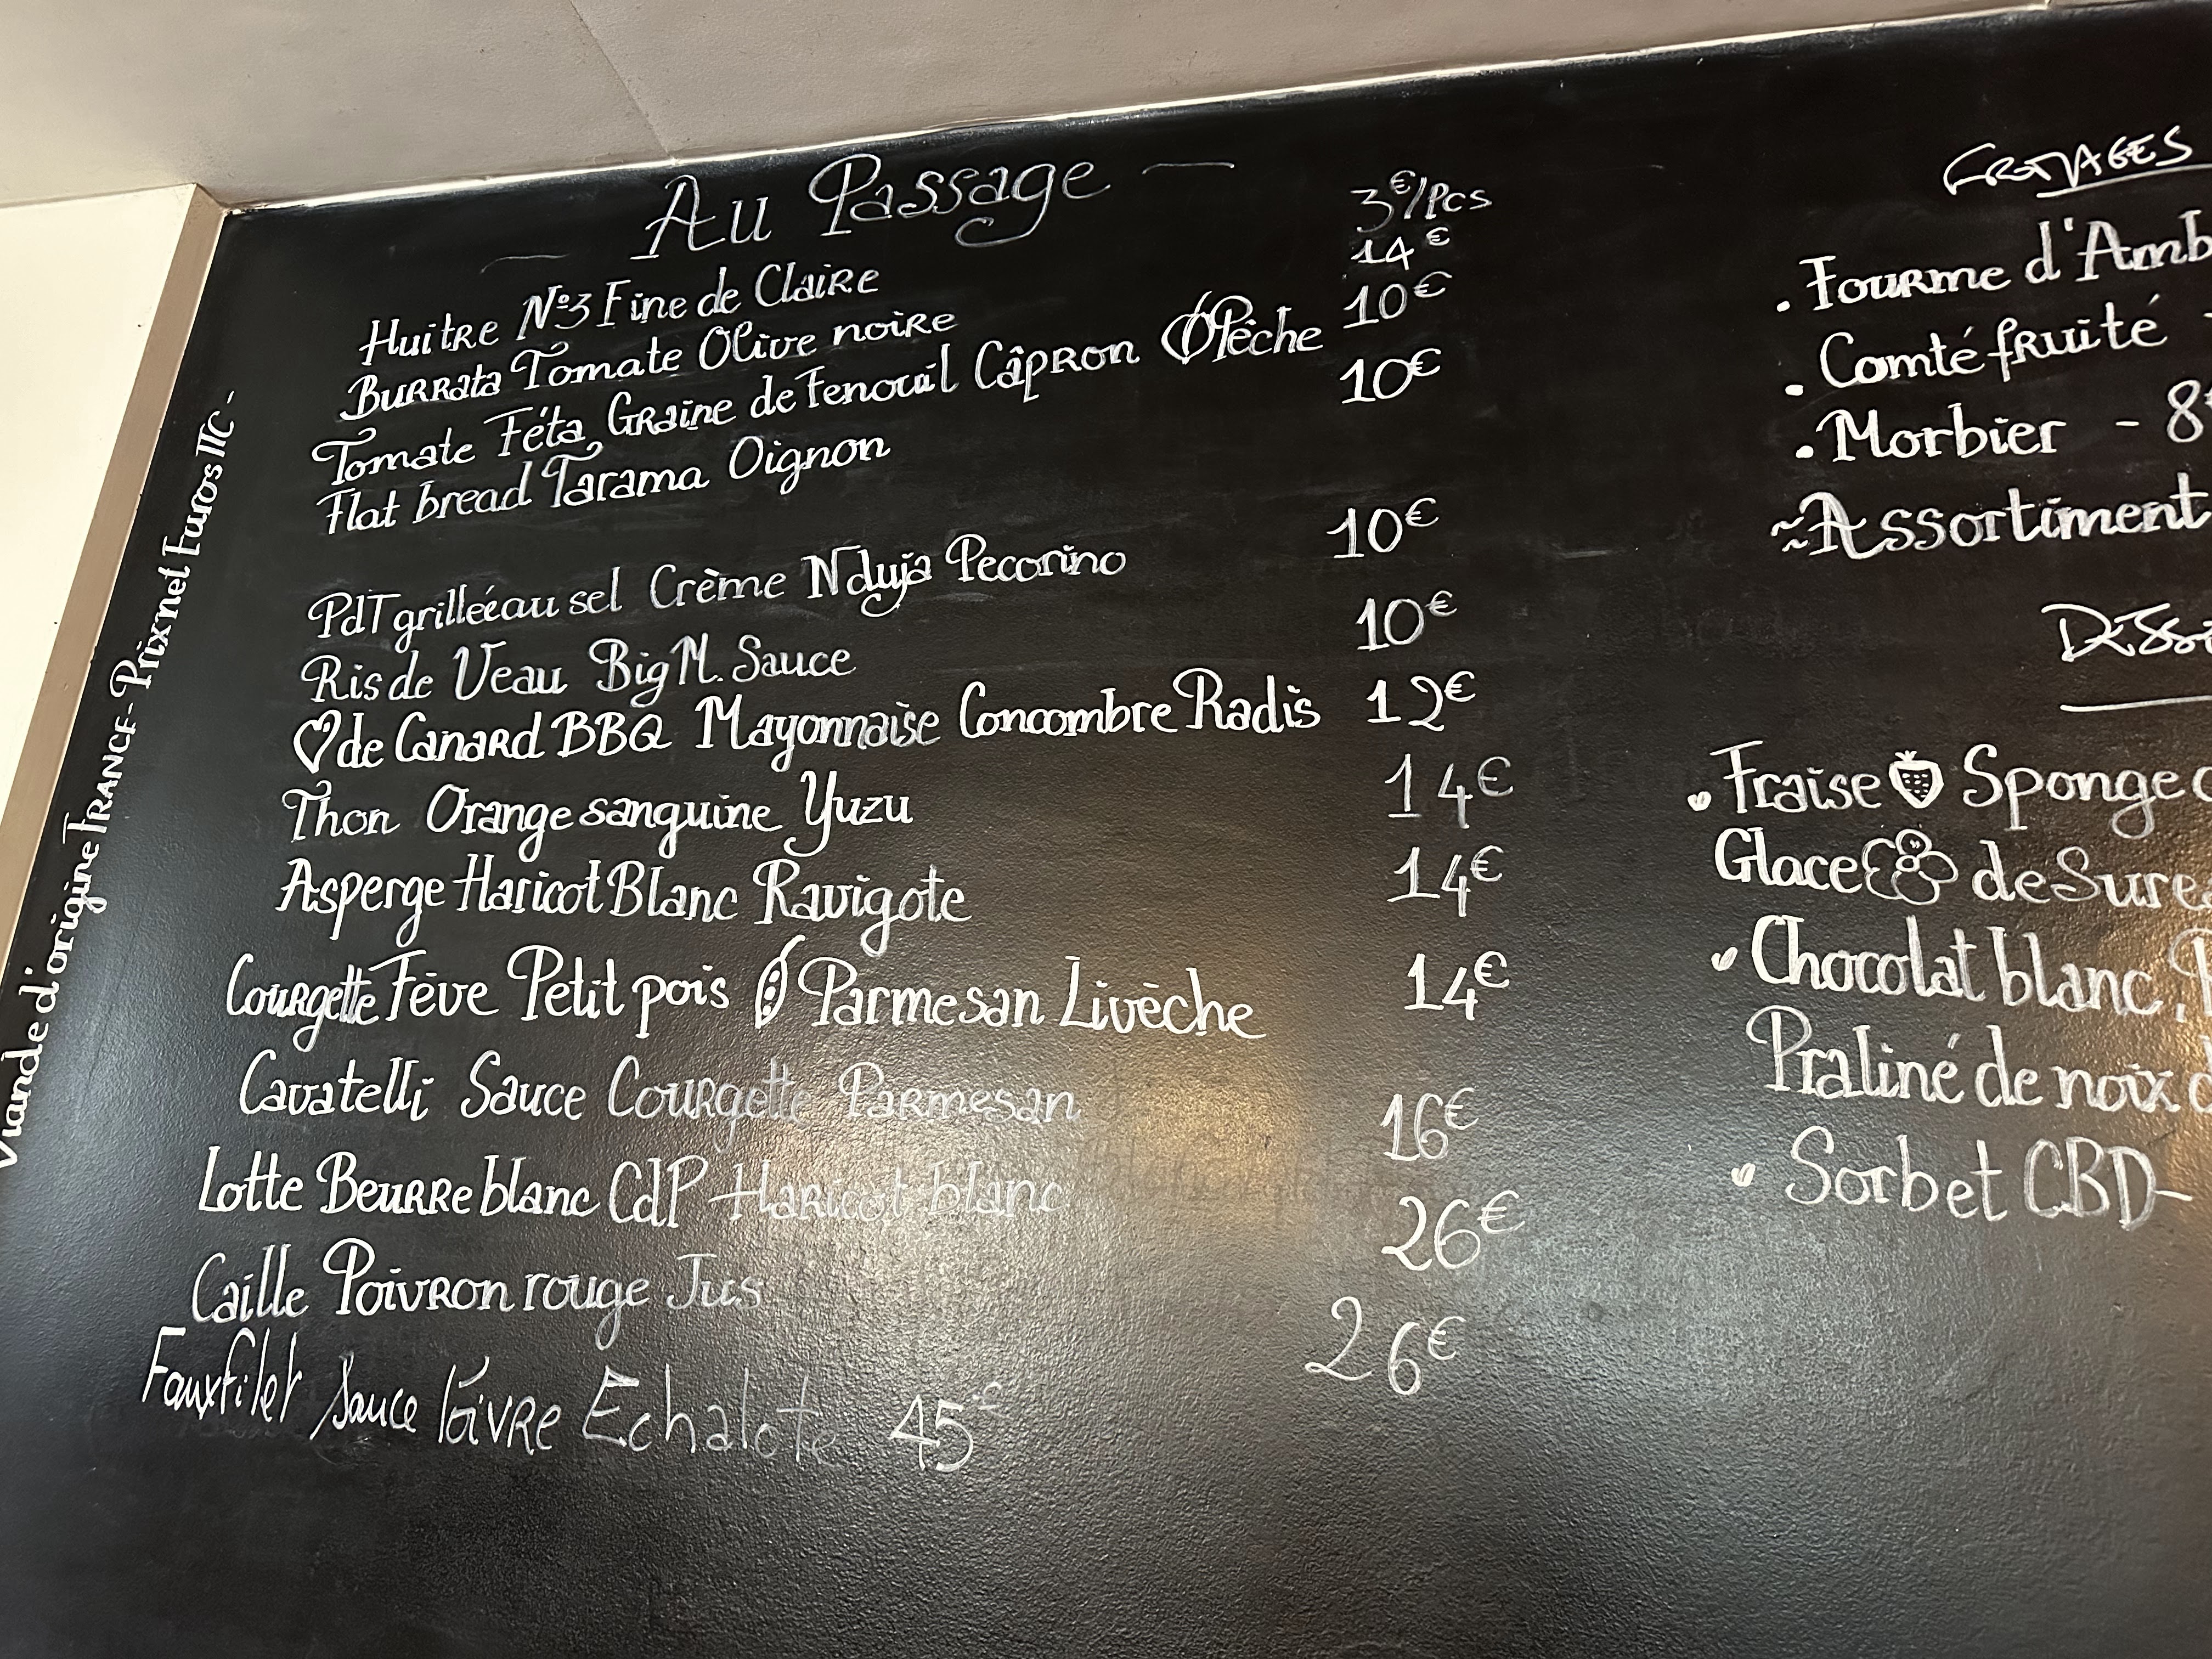 Au Passage
Huitre N°3 Fine de Claire 3€/Pcs
Burrata Tomate Olive noire 14€
Tomate Féta, Graine de Fenouil Câpron Pêche 10€
Flat bread Tarama Oignon 10€
PdT grilléeau sel Crème Nduja Pecorino 10€
Ris de Veau Big M. Sauce 10€
♡ de Canard BBQ Mayonnaise Concombre Radis 12€
Thon Orange sanguine Yuzu 14€
Asperge Haricot Blanc Ravigote 14€
Courgette Fève Petit pois Parmesan Livèche 14€
Cavatelli Sauce Courgette Parmesan 16€
Lotte Beurre blanc CdP Haricot blanc 26€
Caille Poivron rouge Jus 26€
Fauxfilet Sauce Poivre Echalote 45€
Viande d'origine FRANCE - Prix net Euros TTC -
FROMAGES
. Fourme d'Amb
. Comté fruité -
. Morbier - 8
~Assortiment
Desse
Fraise Sponge
Glace de Sure
Chocolat blanc,
Praliné de noix
Sorbet CBD-